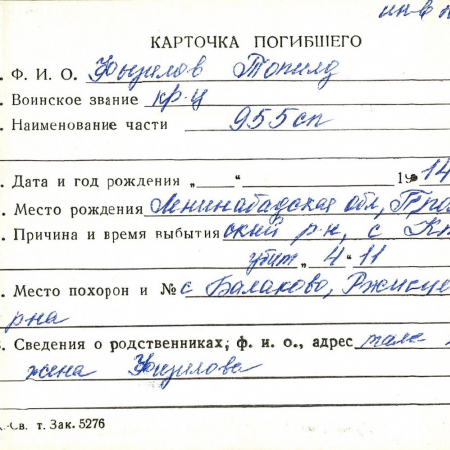 инв
КАРТОЧКА ПОГИБШЕГО
. Ф. И. О. Физилов Топилд
. Воинское звание кр-ц
. Наименование части 955сп
. Дата и год рождения „ “ 1914
. Место рождения Ленинабадская обл,
. Причина и время выбытия ский р-н, с
убит „ 4 11
. Место похорон и № с Балаково, Ржищев
р-на
. Сведения о родственниках, ф. и. о., адрес там
жена Физилова
-Св. т. Зак. 5276